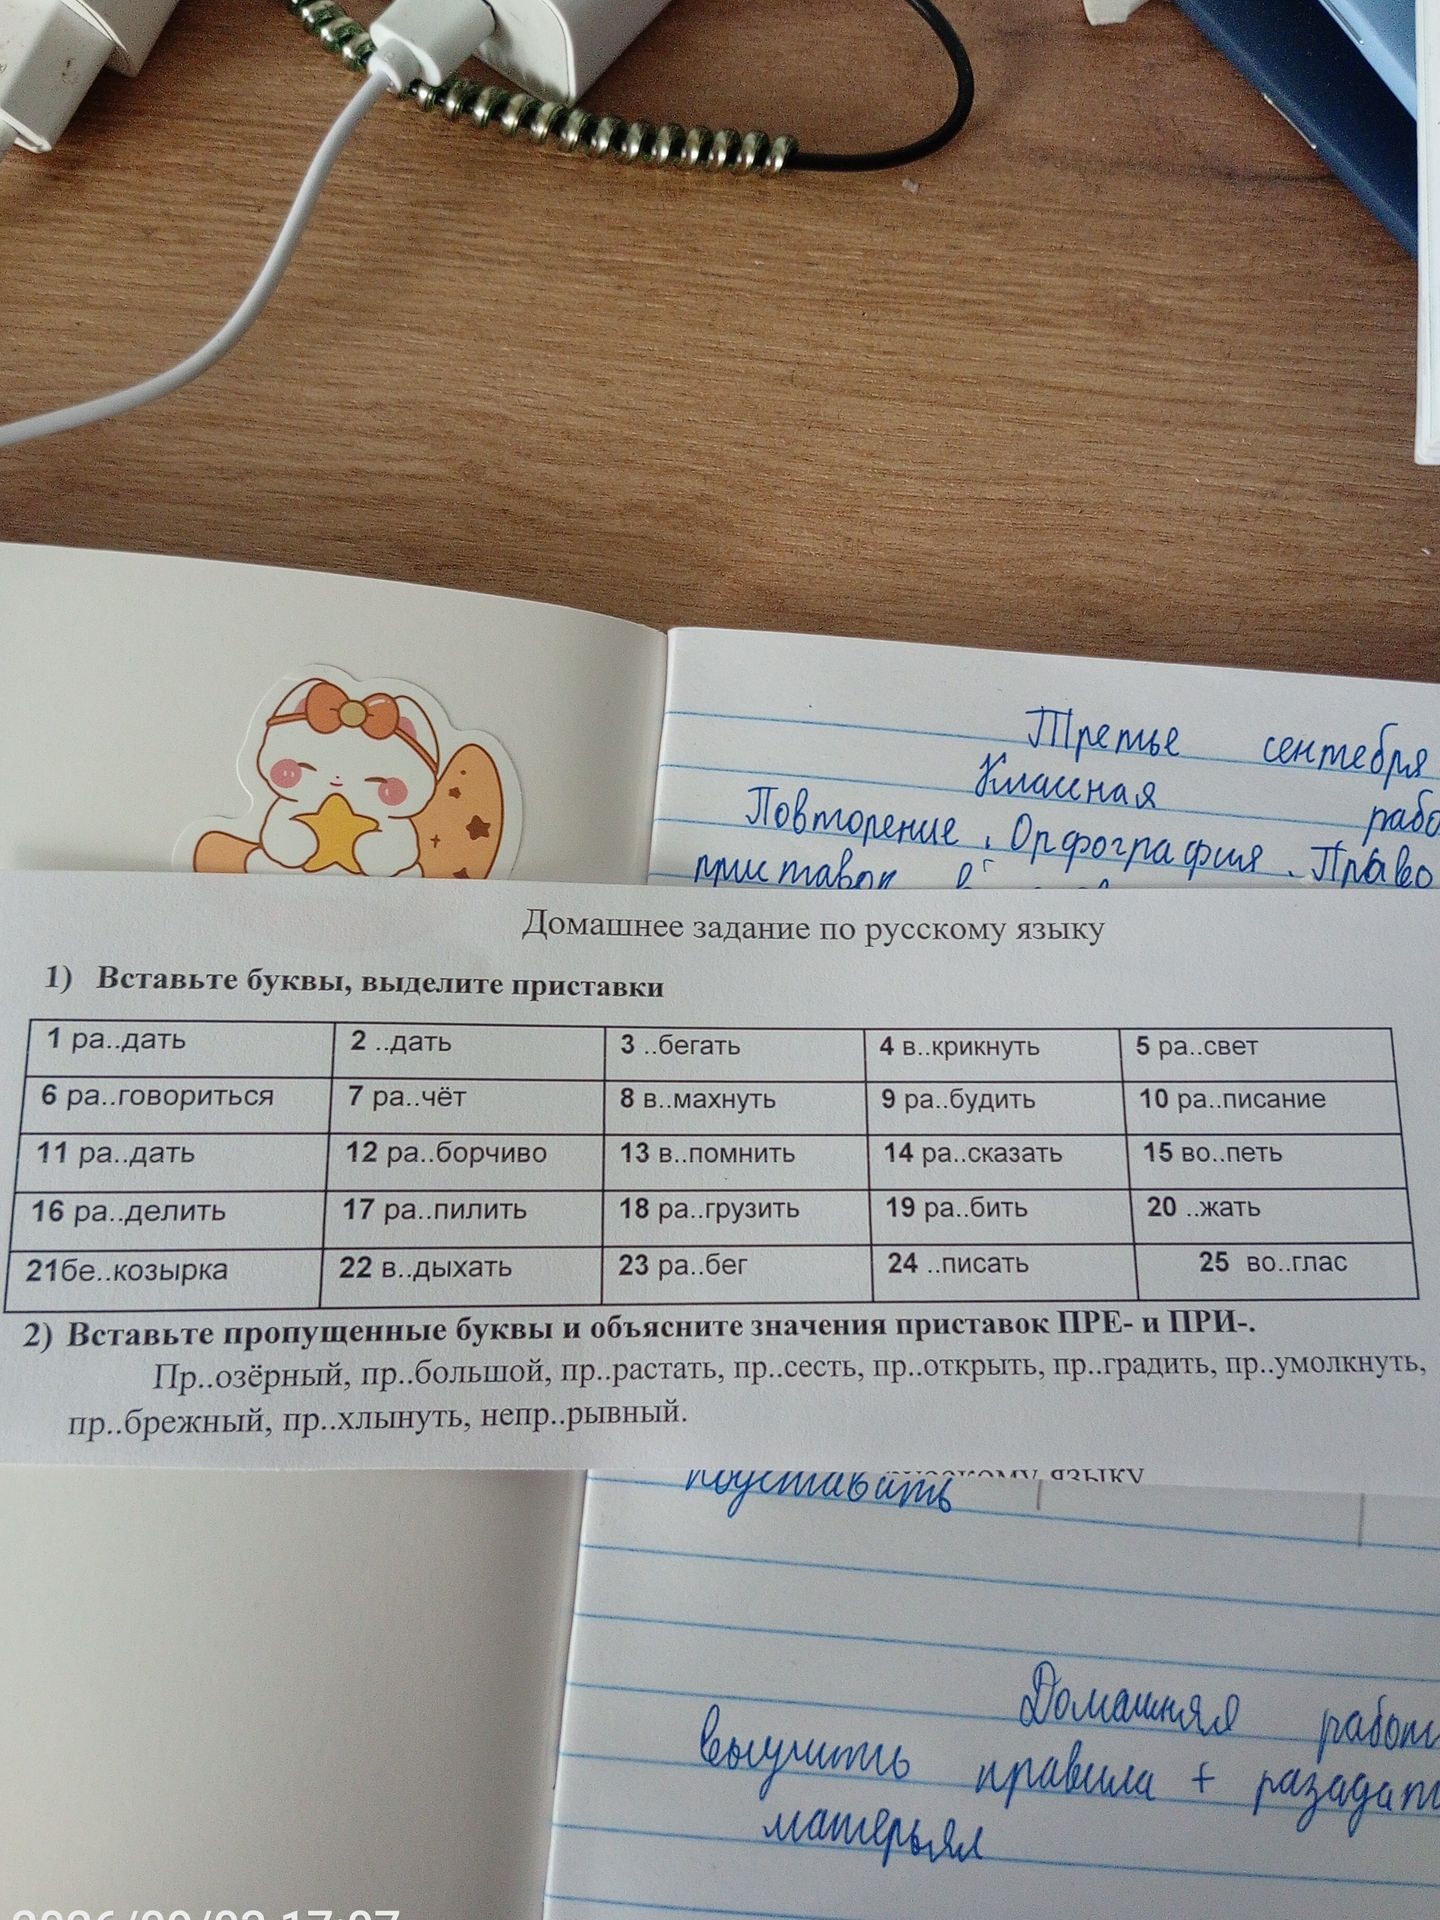 Третье сентября
Классная
Повторение. Орфография. Право
приставок
Домашнее задание по русскому языку
1) Вставьте буквы, выделите приставки
1 ра..дать 2 ..дать 3 ..бегать 4 в..крикнуть 5 ра..свет
6 ра..говориться 7 ра..чёт 8 в..махнуть 9 ра..будить 10 ра..писание
11 ра..дать 12 ра..борчиво 13 в..помнить 14 ра..сказать 15 во..петь
16 ра..делить 17 ра..пилить 18 ра..грузить 19 ра..бить 20 ..жать
21бе..козырка 22 в..дыхать 23 ра..бег 24 ..писать 25 во..глас
2) Вставьте пропущенные буквы и объясните значения приставок ПРЕ- и ПРИ-.
Пр..озёрный, пр..большой, пр..растать, пр..сесть, пр..открыть, пр..градить, пр..умолкнуть,
пр..брежный, пр..хлынуть, непр..рывный.
русскому языку
Домашняя
выучить правила +
матерьял